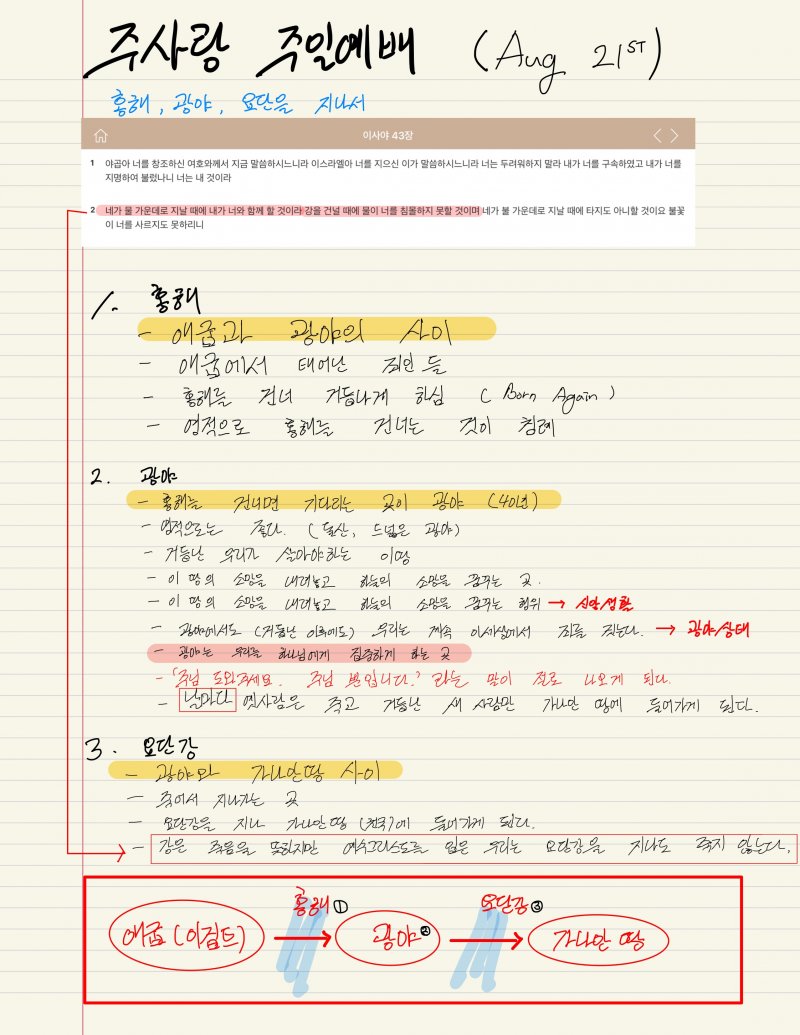 주사랑 주일예배 (Aug 21ST)
홍해, 광야, 요단을 지나서
이사야 43장
1 야곱아 너를 창조하신 여호와께서 지금 말씀하시느니라 이스라엘아 너를 지으신 이가 말씀하시느니라 너는 두려워하지 말라 내가 너를 구속하였고 내가 너를
지명하여 불렀나니 너는 내 것이라
2 네가 물 가운데로 지날 때에 내가 너와 함께 할 것이라 강을 건널 때에 물이 너를 침몰하지 못할 것이며 네가 불 가운데로 지날 때에 타지도 아니할 것이요 불꽃
이 너를 사르지도 못하리니
1. 홍해
- 애굽과 광야의 사이
- 애굽에서 태어난 죄인들
- 홍해를 건너 거듭나게 하심 (Born Again)
- 영적으로 홍해를 건너는 것이 침례
2. 광야
- 홍해를 건너면 기다리는 곳이 광야 (40년)
- 영적으로는 좁다. (돌산, 드넓은 광야)
- 거듭난 우리가 살아야하는 이땅
- 이 땅의 소망을 내려놓고 하늘의 소망을 꿈꾸는 곳.
- 이 땅의 소망을 내려놓고 하늘의 소망을 꿈꾸는 행위 → 신앙생활
- 광야에서도 (거듭난 이후에도) 우리는 계속 이세상에서 죄를 짓는다. → 광야상태
- 광야는 우리를 하나님에게 집중하게 하는 곳
- '주님 도와주세요. 주님 뿐입니다.' 라는 말이 절로 나오게 된다.
- 날마다 옛사람은 죽고 거듭난 새 사람만 가나안 땅에 들어가게 된다.
3. 요단강
- 광야와 가나안땅 사이
- 죽어서 지나가는 곳
- 요단강을 지나 가나안땅(천국)에 들어가게 된다.
- 강은 죽음을 뜻하지만 예수그리스도를 입은 우리는 요단강을 지나도 죽지 않는다.
홍해① 요단강③
애굽(이집트) → 광야② → 가나안 땅